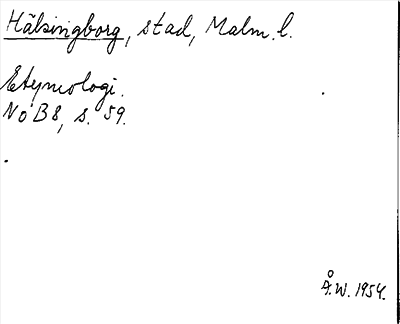 Hälsingborg, stad, Malm. l.
Etymologi.
NoB 8, s. 59.
Å.W. 1954.